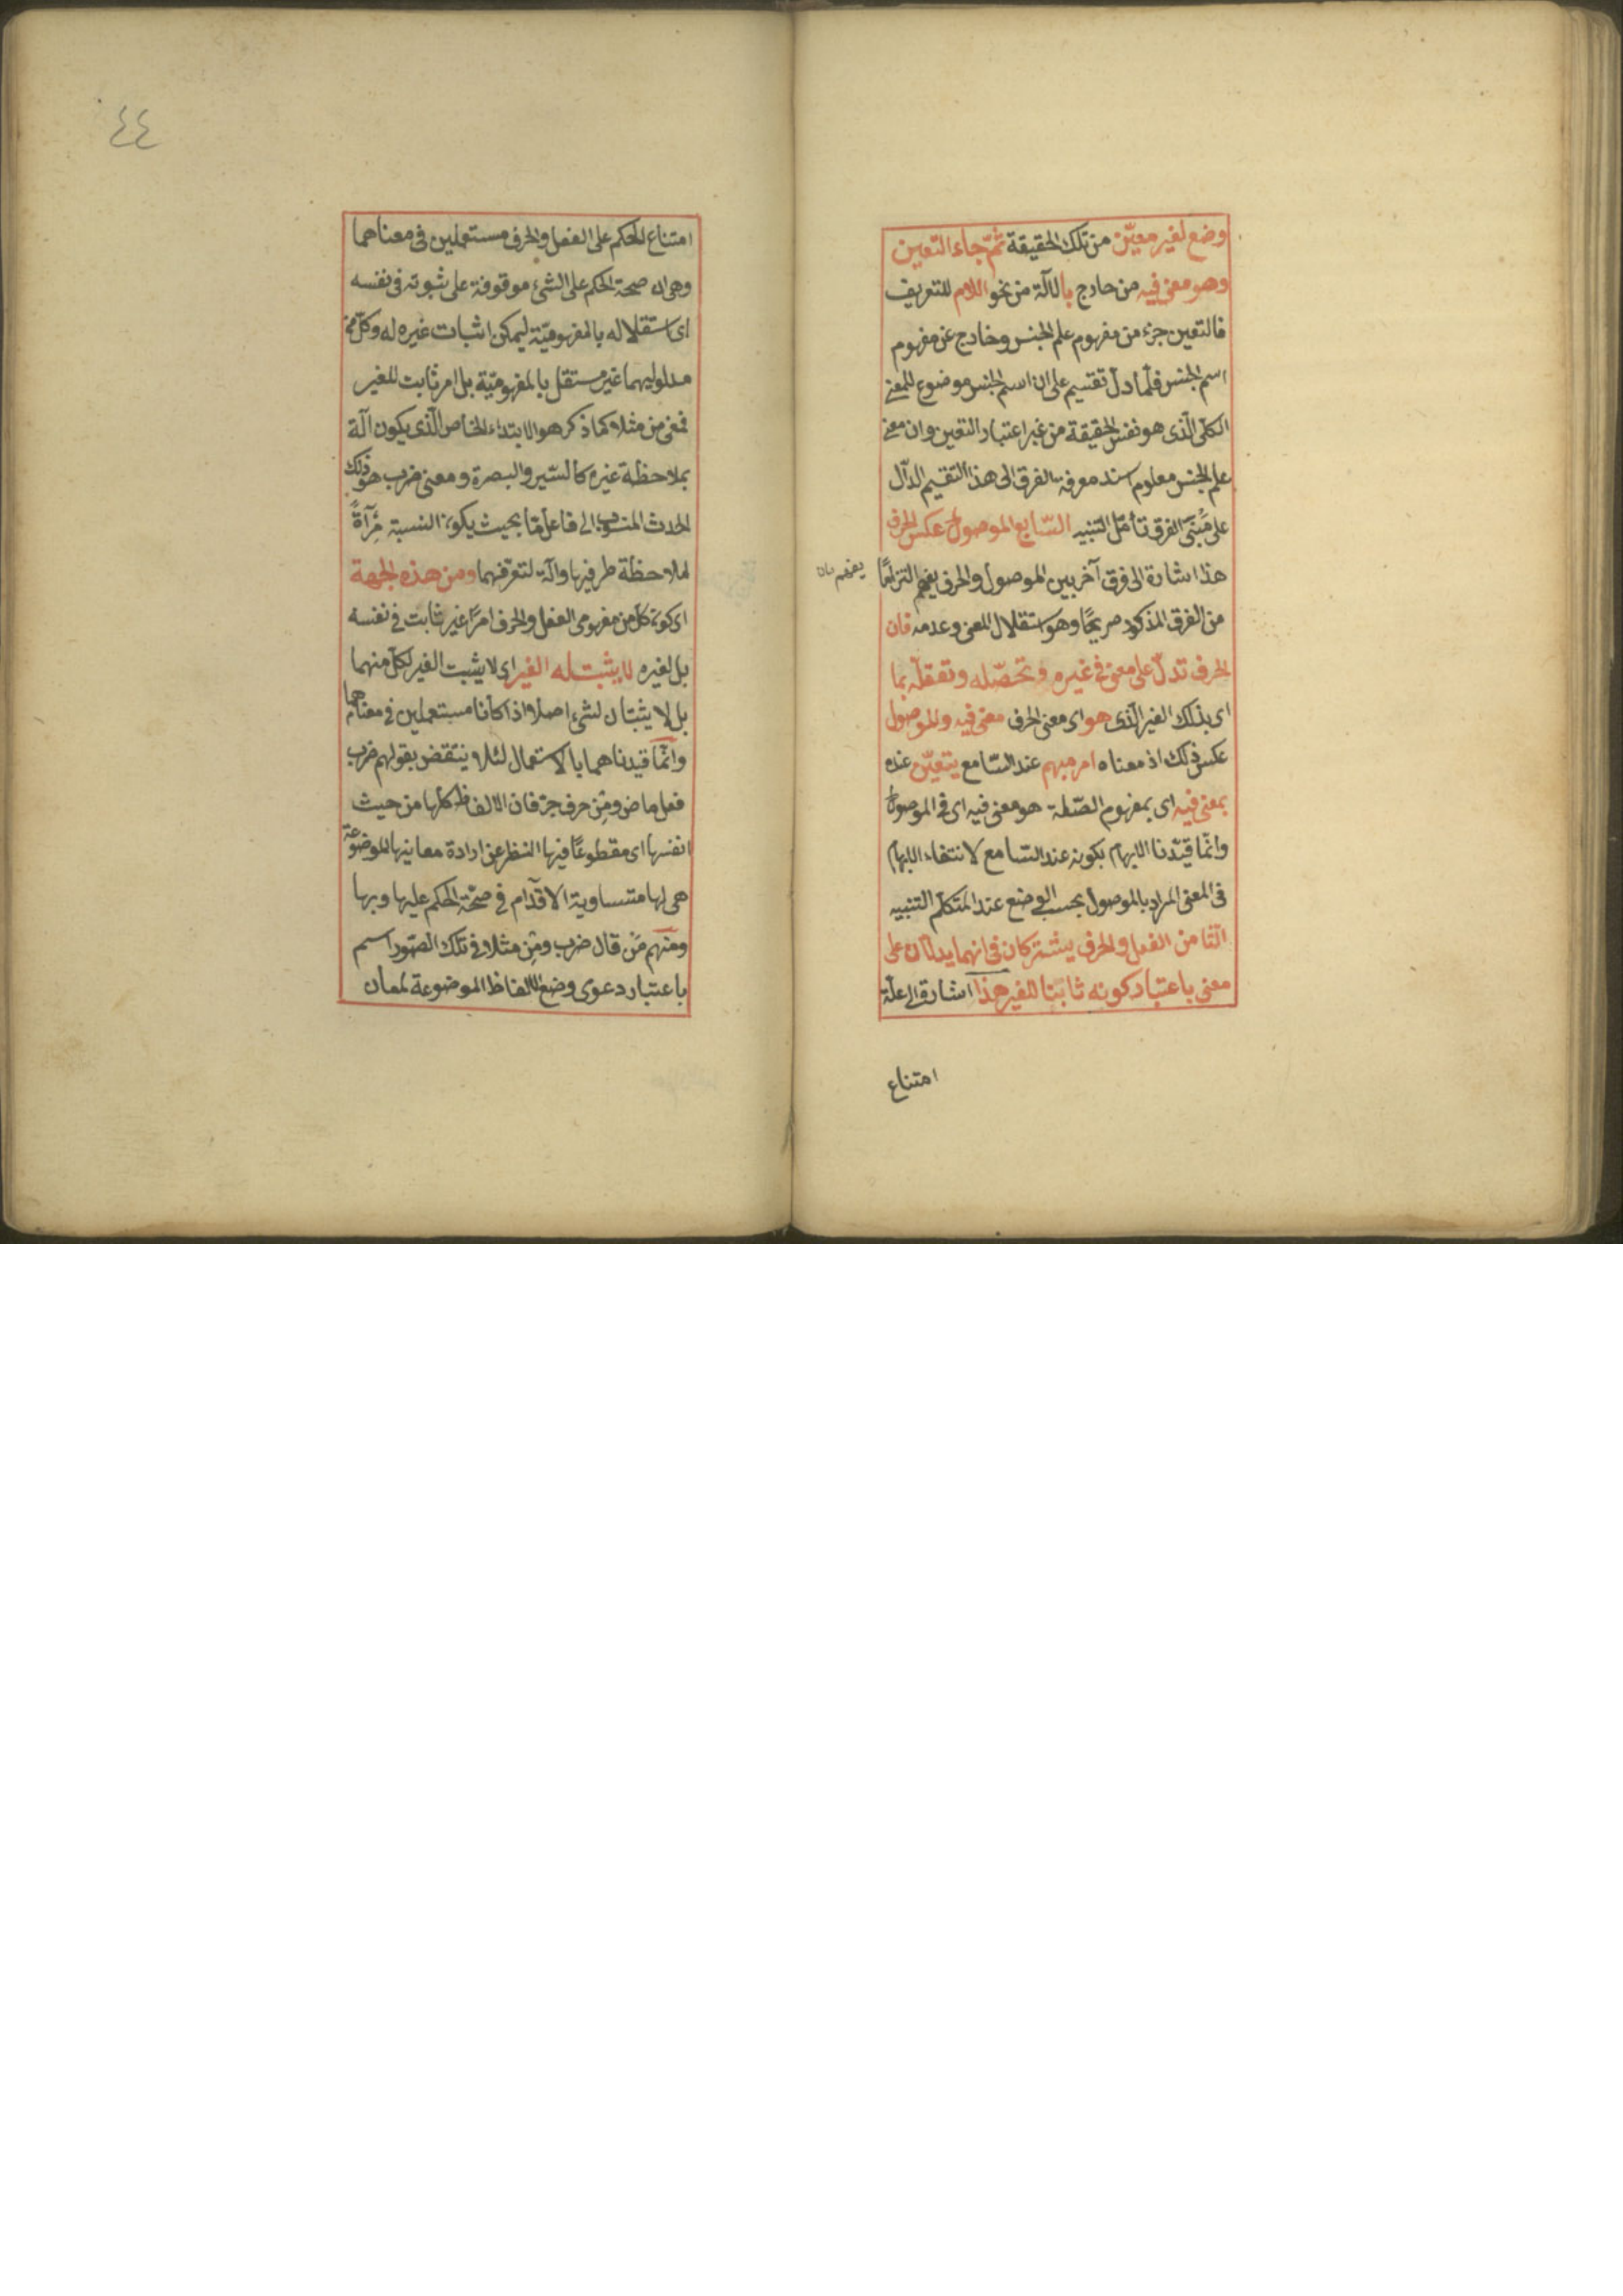 وضع لغير معيّن من تلك الحقيقة ثمّ جاء التعين
وهو معنى فيه من خارج بالآلة من نحو اللام للتعريف
فالتعين جزء من مفهوم علم الجنس وخارج عن مفهوم
اسم الجنس فلما دلّ تقسيم على ان اسم الجنس موضوع للمعنى
الكلى الّذى هو نفس الحقيقة من غير اعتبار التعين وان معنى
علم الجنس معلوم اسند معرفة الفرق الى هذا التقسيم الدّال
على مَبْنَى الفرق تأمّل التنبيه السّابع الموصول عكس الحرف
هذا اشارة الى فرق آخر بين الموصول والحرف يفهم التزامًا
يفهم
من الفرق المذكور صريحًا وهو استقلال المعنى وعدمه فان
الحرف تدلّ على معنى فى غيره وتحصّله وتعقله بما
اى بذلك الغير الّذى هو اى معنى الحرف معنى فيه والموصول
عكس ذلك اذ معناه امر مبهم عند السّامع يتعيّن عنده
بمعنى فيه اى بمفهوم الصّلة هو معنى فيه اى فى الموصول
وانّما قيّدنا الابهام بكونه عند السّامع لانتفاء الابهام
فى المعنى المراد بالموصول بحسب الوضع عند المتكلّم التنبيه
الثّامن الفعل والحرف يشتركان فى انهما يدلّان على
معنى باعتبار كونه ثابتا للغير هذا اشارة الى علّة
امتناع
٤٤
امتناع الحكم على الفعل والحرف مستعملين فى معناهما
وهى ان صحة الحكم على الشئ موقوفة على ثبوته فى نفسه
اى استقلاله بالمفهوميّة ليمكن اثبات غيره له وكلّ من
مدلوليهما غير مستقل بالمفهوميّة بل امر ثابت للغير
فمعنى من مثلا كما ذكر هو الابتداء الخاص الّذى يكون آلة
بملاحظة غيره كالسّير والبصرة ومعنى ضرب هو ذلك
الحدث المنسوب الى فاعل مّا بحيث يكون النسبة مرآةً
لملاحظة طرفيها وآلة لتعرّفهما ومن هذه الجهة
اى كون كلّ من مفهومى الفعل والحرف امرًا غير ثابت فى نفسه
بل لغيره لا يثبت له الغير اى لا يثبت الغير لكلّ منهما
بل لا يثبتان لشئ اصلا اذا كانا مستعملين فى معناهما
وانّما قيدناهما بالاستعمال لئلا ينتقض بقولهم ضرب
فعل ماض ومِن حرف جرّ فان الالفاظ كلّها من حيث
انفسها اى مقطوعًا فيها النظر عن ارادة معانيها الموضوعة
هى لها متساوية الاقدام فى صحّة الحكم عليها وبها
ومنهم مَن قال ضرب ومِن مثلا فى تلك الصّور اسم
باعتبار دعوى وضع الالفاظ الموضوعة لمعان